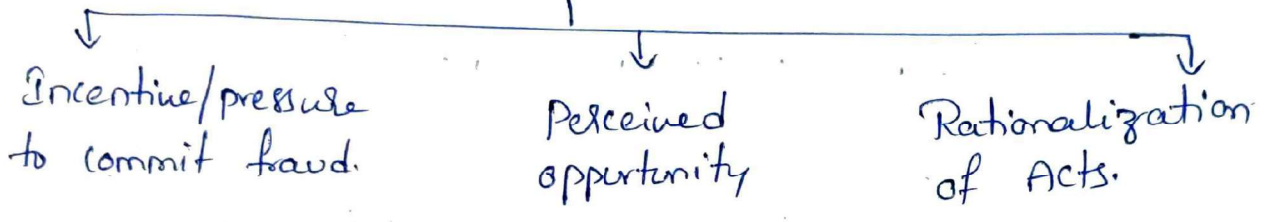 Incentive/pressure
to commit fraud.
Perceived
oppurtunity
Rationalization
of Acts.